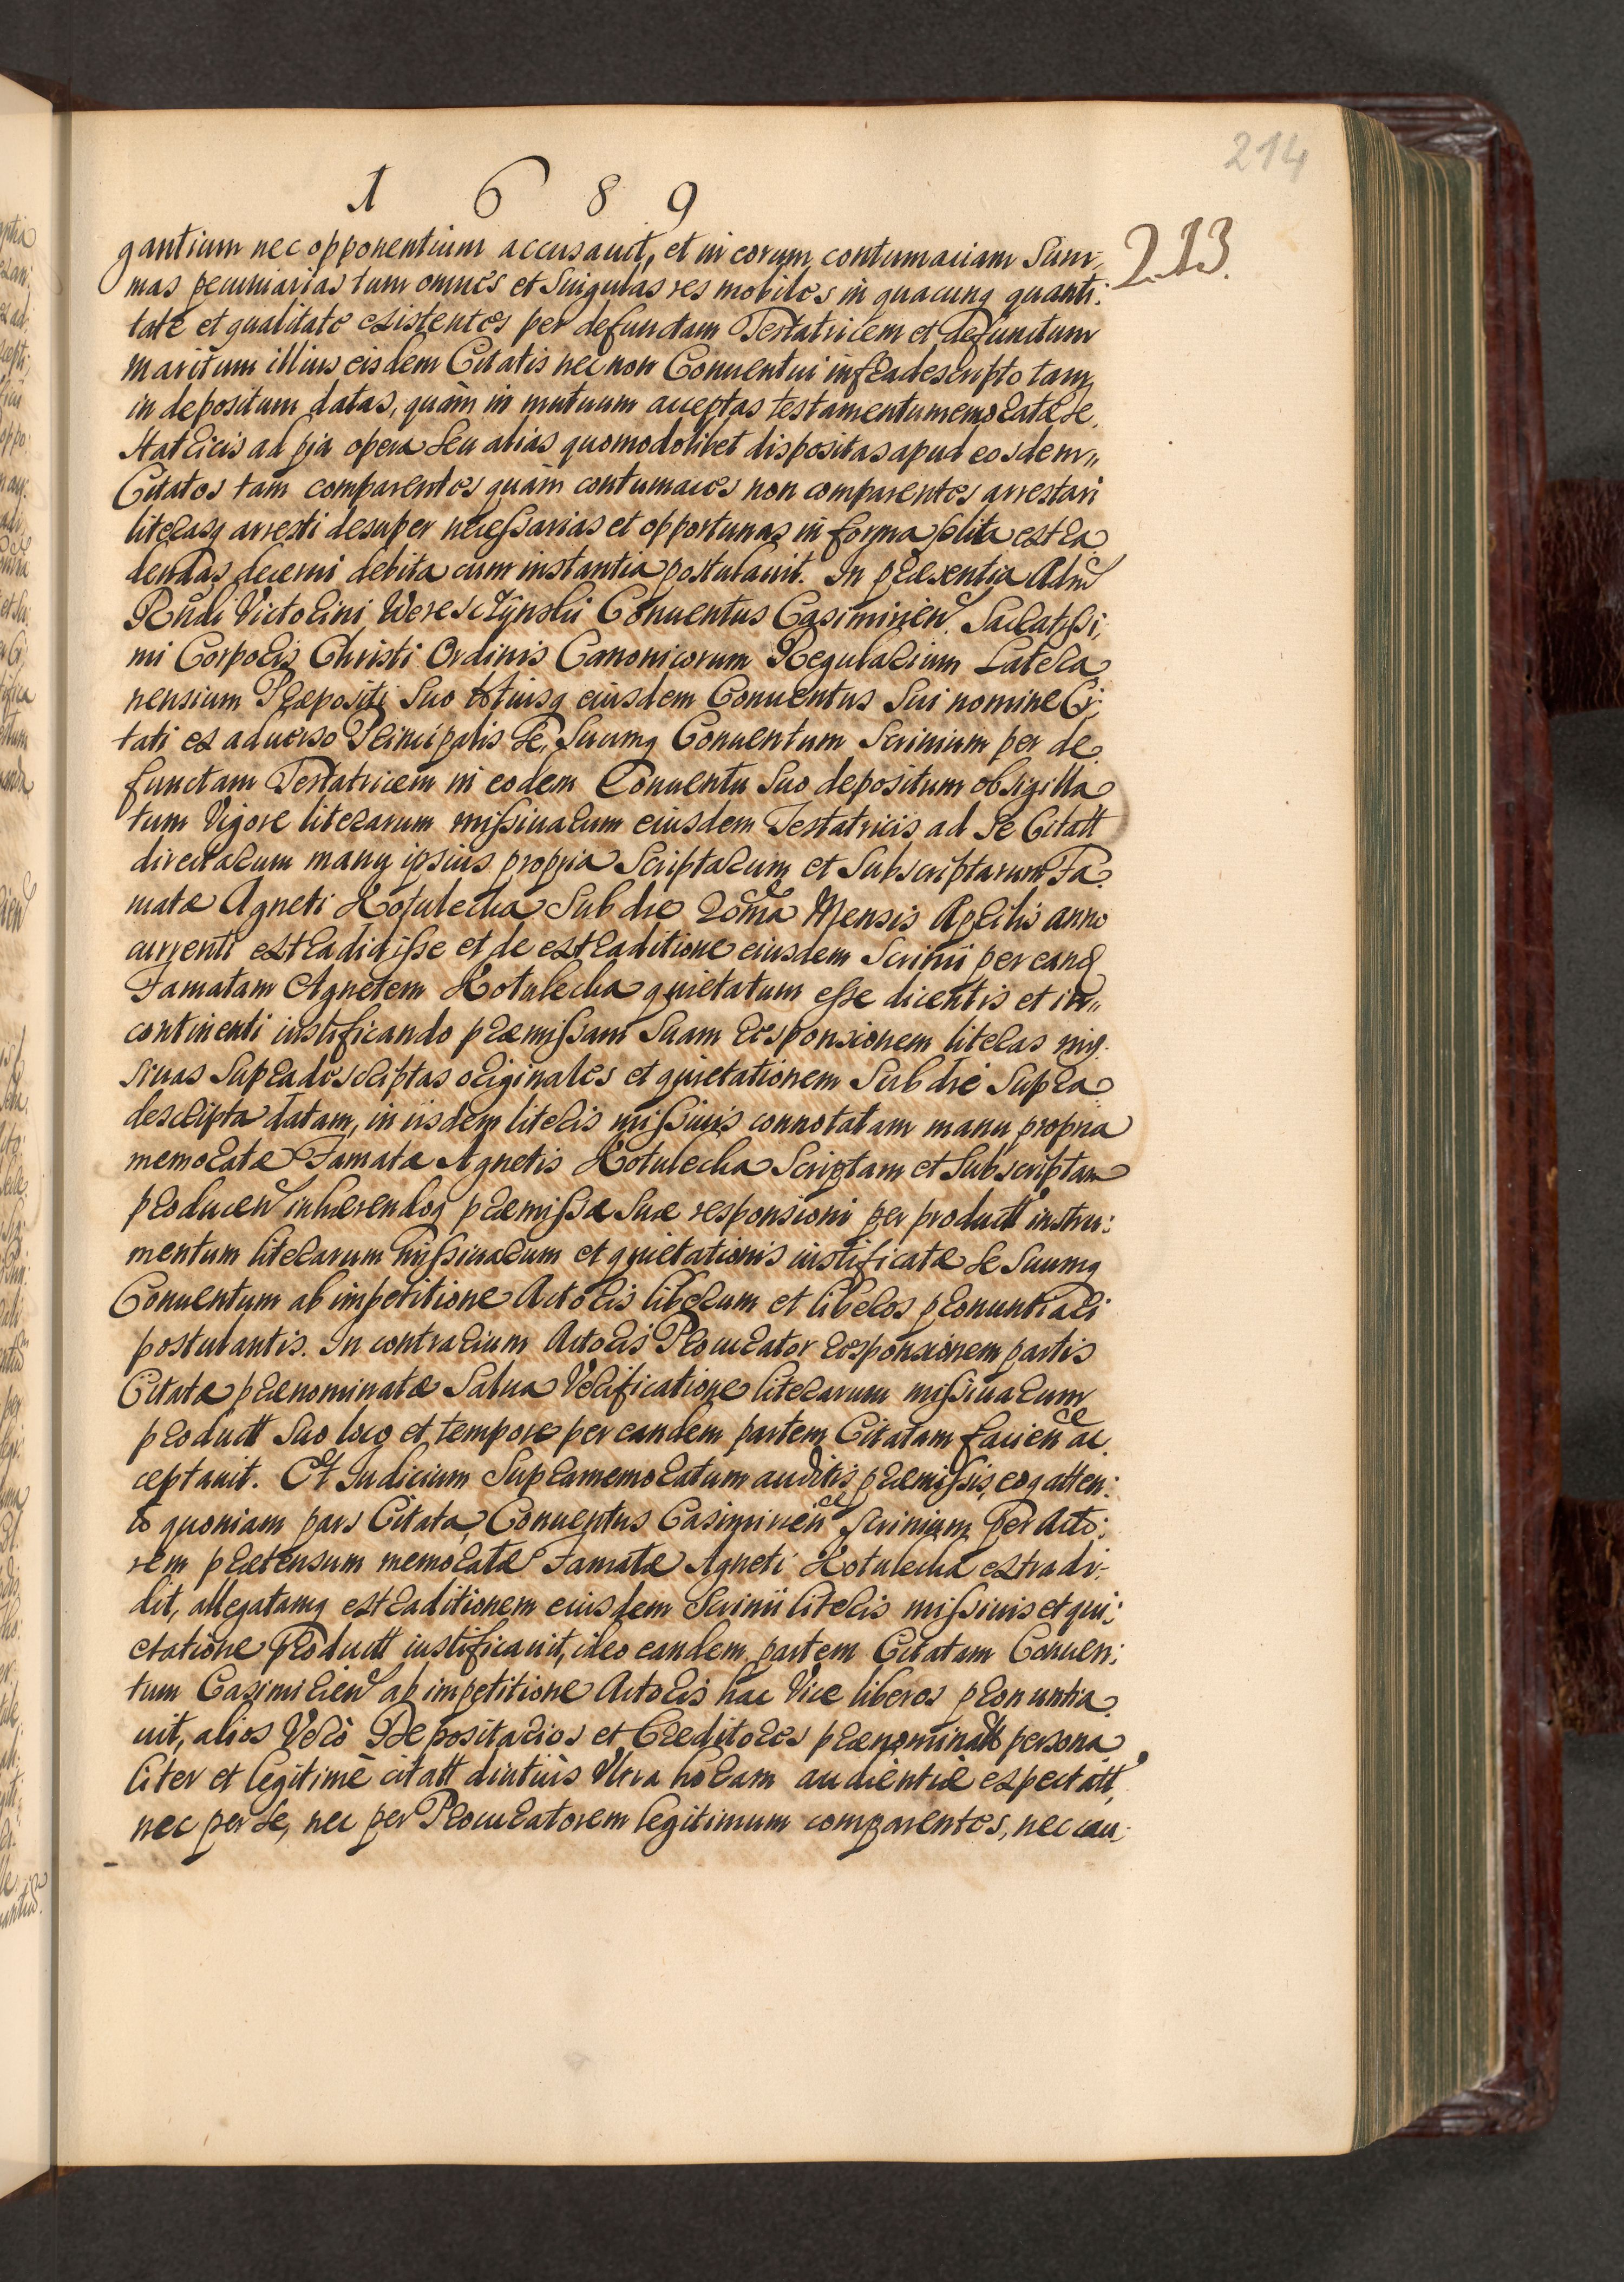 214
1 6 8 9
213.
gantium nec opponentium accusauit, et in eorum contumaciam Sum-
mas pecuniarias tum omnes et Singulas res mobiles in quacunq quanti:
tate et qualitate existentes per defunctam Testatricem et defunctum
maritum illius eisdem Citatis nec non Conuentui infradescripto tam
in depositum datas, quàm in mutuum acceptas testamentumemoratæ Te,
statricis ad pia opera Seu alias quomodolibet dispositas apud eosdem,,
Citatos tam comparentes quàm contumaces non comparentes arrestari
literasq arresti desuper necessarias et opportunas in forma solita extra
dendas decerni debita cum instantia postulauit. In præsentia Adm
Rndi Victorini Weresczÿnski Conuentus Casimirien Sacratissi,
mi Corporis Christi Ordinis Canonicorum Regularium Latera
nensium Præpositi Suo totiusq eiusdem Conuentus Sui nomine Ci,
tati ex aduerso Principalis Se, Suumq Conuentum Scrinium per de
functam Testatricem in eodem Conuentu Suo depositum obsigilla
tum Vigore literarum missiualum eiusdem Testatricis ad Se Citatt
directarum manu ipsius propria Scriptarum et Subscriptarum Fa
matæ Agneti Kotulecka Sub die 20ma Mensis Aprilis anno
currenti extradidisse et de extraditione eiusdem Scrinii per eand
Famatam Agnetem Kotulecka quietatum esse dicentis et in,,
continenti iustificando præmissam Suam responsionem literas mis-
siuas Supradescriptas originales et quietationem Sub die Supra
descripta datam, in iisdem literis missiuis connotatam manu propria
memoratæ Famatæ Agnetis Kotulecka Scriptam et Subscriptam
producen inhærendoq præmissæ Suæ responsioni per productt instru:
mentum literarum missiualum et quietationis iustificatæ Se Suumq
Conuentum ab impetitione Actoris liberum et liberos pronuntiari
postulantis. In contrarium Actoris Procurator responsionem partis
Citatæ prænominatæ Salua Verificatione literarum missiualum
productt Suo loco et tempore per eandem partem Citatam facien ac
ceptauit. Et Iudicium Supramemoratum auditis præmissis, eoq atten:
to quoniam pars Citata Conuentus Casimirien Scrinium per Acto:
rem prætensum memoratæ Famatæ Agneti Kotulecka extradi-
dit, allegatamq extraditionem eiusdem Scrinii literis missiuis et qui:
etatione productt iustificauit, ideo eandem partem Citatam Conuen:
tum Casimirien ab impetitione Actoris hac Vice liberos pronuntia
uit, alios Verò Depositarios et Creditores prænominatt persona
liter et legitimè citatt diutiùs Vltra horam audientiæ expectatt,
nec per Se, nec per Procuratorem legitimum comparentes, nec cau-